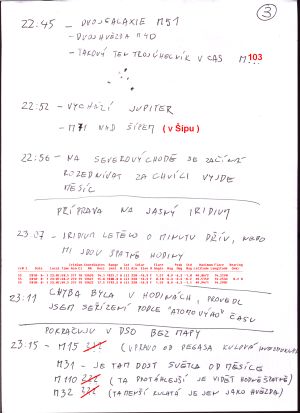 3
22:45 - DVOJGALAXIE M51
- DVOJHVĚZDA M40
- TAKOVÝ TEN TROJÚHELNÍK V CAS M103
22:52 - VYCHÁZÍ JUPITER
- M71 NAD ŠÍPEM (v Šípu)
22:56 - NA SEVEROVÝCHODĚ SE ZAČÍNÁ
ROZEDNÍVAT ZA CHVÍLI VYJDE
MĚSÍC
PŘÍPRAVA NA JASNÝ IRIDIUM
23:07 - IRIDIUM LETĚLO O MINUTU DŘÍV, NEBO
MI JDOU ŠPATNĚ HODINY
23:11 CHYBA BYLA V HODINÁCH, PROVEDL
JSEM SEŘÍZENÍ PODLE "ATOMOVÝHO" ČASU
POKRAČUJU V DSO BEZ MAPY
23:15 - M15 (VPRAVO OD PEGASA KULOVÁ HVĚZDOKUPA
M31 - JE TAM DOST SVĚTLA OD MĚSÍCE
M110 (TA PROTÁHLEJŠÍ JE VIDĚT HODNĚ ŠPATNĚ)
M32 (TA MENŠÍ KULATÁ JE JEN JAKO HVĚZDA)